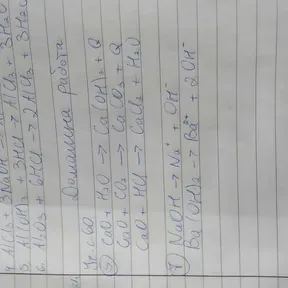 4. AlCl3 + 3NaOH →
5 Al(OH)3 + 3HCl → AlCl3 + 3H2O
6. Al2O3 + 6HCl → 2AlCl3 + 3H2O
Домашна работа
60
CaO + H2O → Ca(OH)2 + Q
CaO + CO2 → CaCO3 + Q
CaO + HCl → CaCl2 + H2O
NaOH → Na+ + OH-
Ba(OH)2 → Ba2+ + 2OH-